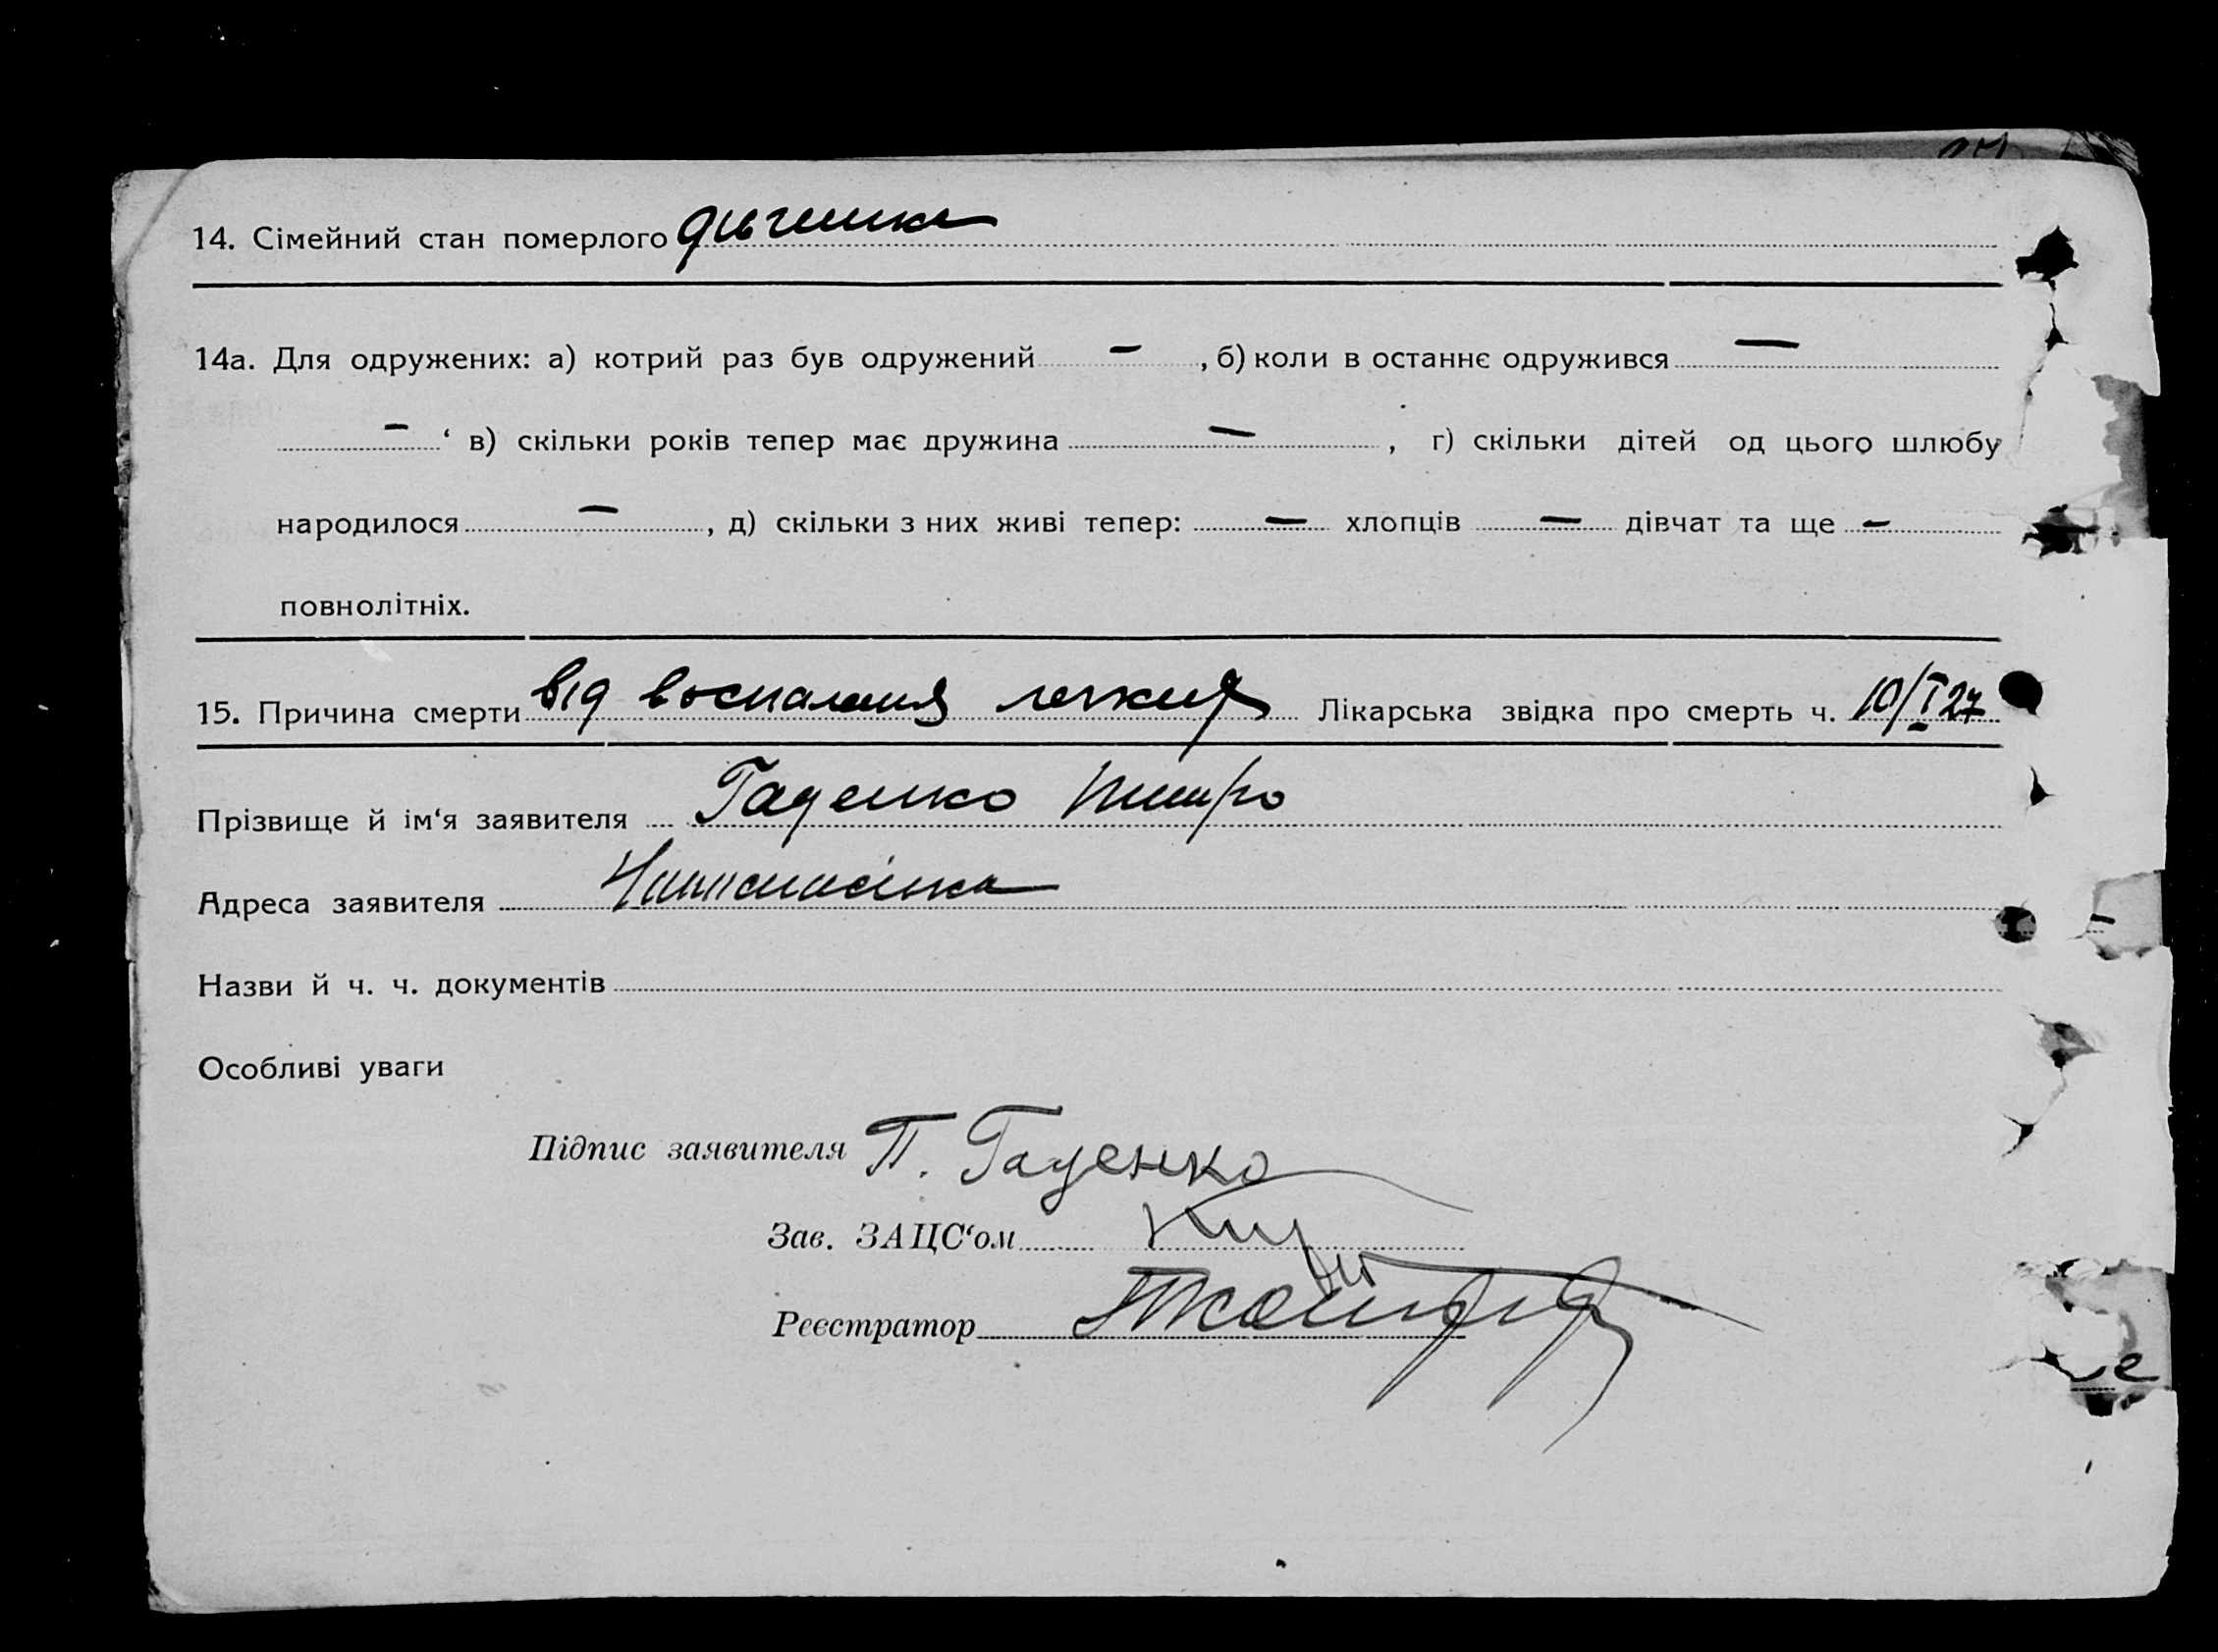 14. Сімейний стан померлого
14а. Для одружених: а) котрий раз був одружений — , б) коли в останнє одружився —
— ‘ в) скільки років тепер має дружина — , г) скільки дітей од цього шлюбу
народилося — , д) скільки з них живі тепер: — хлопців — дівчат та ще —
повнолітніх.
15. Причина смерти від воспаления легких Лікарська звідка про смерть ч. 10/I 27
Прізвище й ім‘я заявителя Гаценко
Адреса заявителя
Назви й ч. ч. документів
Особливі уваги
Підпис заявителя П. Гаценко
Зав. ЗАЦС‘ом
Реєстратор